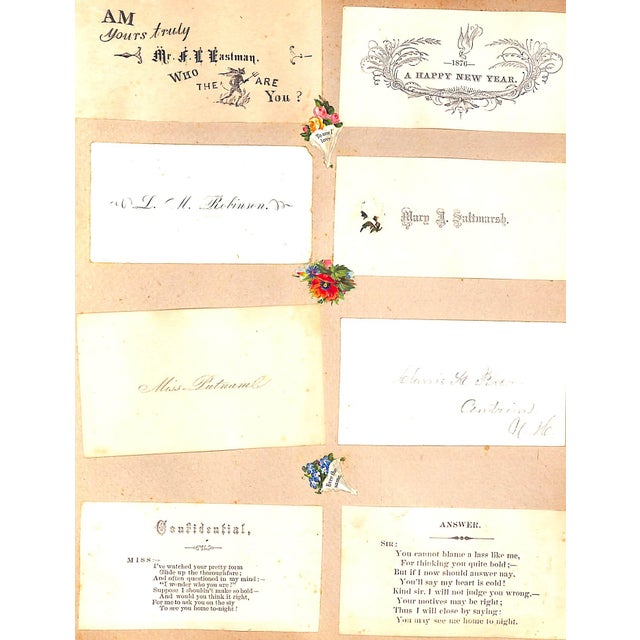 AM
Yours truly
Mr. F. L Eastman.
WHO
THE ARE
YOU?
—1876—
A HAPPY NEW YEAR.
To one I
love.
L. M. Robinson.
Mary J. Saltmarsh.
Miss Putnam
N H
Ever the
same.
Confidential,
MISS:—
I've watched your pretty form
Glide up the thoroughfare;
And often questioned in my mind:—
"I wonder who you are?"
Suppose I shouldn't make so bold—
And would you think it right,
For me to ask you on the sly
To see you home to-night!
ANSWER.
SIR:
You cannot blame a lass like me,
For thinking you quite bold;—
But if I now should answer nay.
You'll say my heart is cold!
Kind sir. I will not judge you wrong.—
Your motives may be right;
Thus I will close by saying:
You may see me home to night.